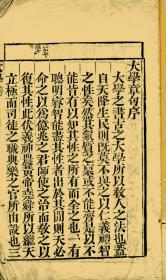 大學章句序
大學之書古之大學所以教人之法也蓋
自天降生民則既莫不與之以仁義禮智
之性矣然其氣質之稟或不能齊是以不
能皆有以知其性之所有而全之也一有
聰明睿智能盡其性者出於其閒則天必
命之以為億兆之君師使之治而教之以
復其性此伏羲神農黃帝堯舜所以繼天
立極而司徒之職典樂之官所由設也三